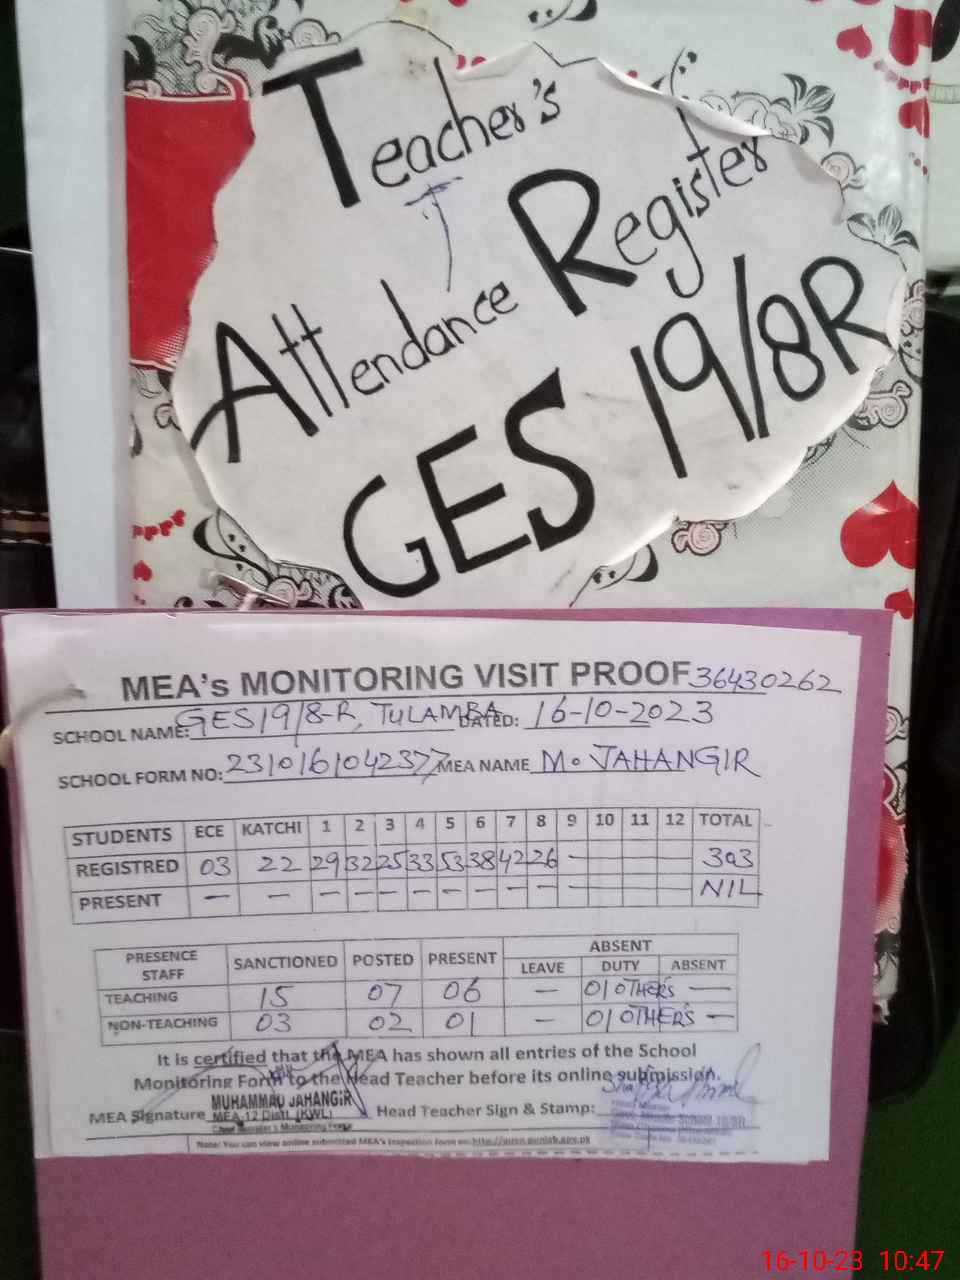 Teacher's
Attendance Register
GES 19/8R
MEA's MONITORING VISIT PROOF 36430262
SCHOOL NAME: GES 19/8-R, TULAMBA DATED: 16-10-2023
SCHOOL FORM NO: 2310161042377 MEA NAME M. JAHANGIR
STUDENTS ECE KATCHI 1 2 3 4 5 6 7 8 9 10 11 12 TOTAL
REGISTRED 03 22 29 32 25 33 53 38 42 26 — 303
PRESENT — — — — — — — — — — — NIL
PRESENCE STAFF SANCTIONED POSTED PRESENT ABSENT
LEAVE DUTY ABSENT
TEACHING 15 07 06 — 01 OTHERS —
NON-TEACHING 03 02 01 — 01 OTHERS —
It is certified that the MEA has shown all entries of the School
Monitoring Form to the Head Teacher before its online submission.
MEA Signature MUHAMMAD JAHANGIR Head Teacher Sign & Stamp:
MEA-12 Distt. (KWL)
Chief Minister's Monitoring Force
Note: You can view online submitted MEA's inspection form on: http://
16-10-23 10:47